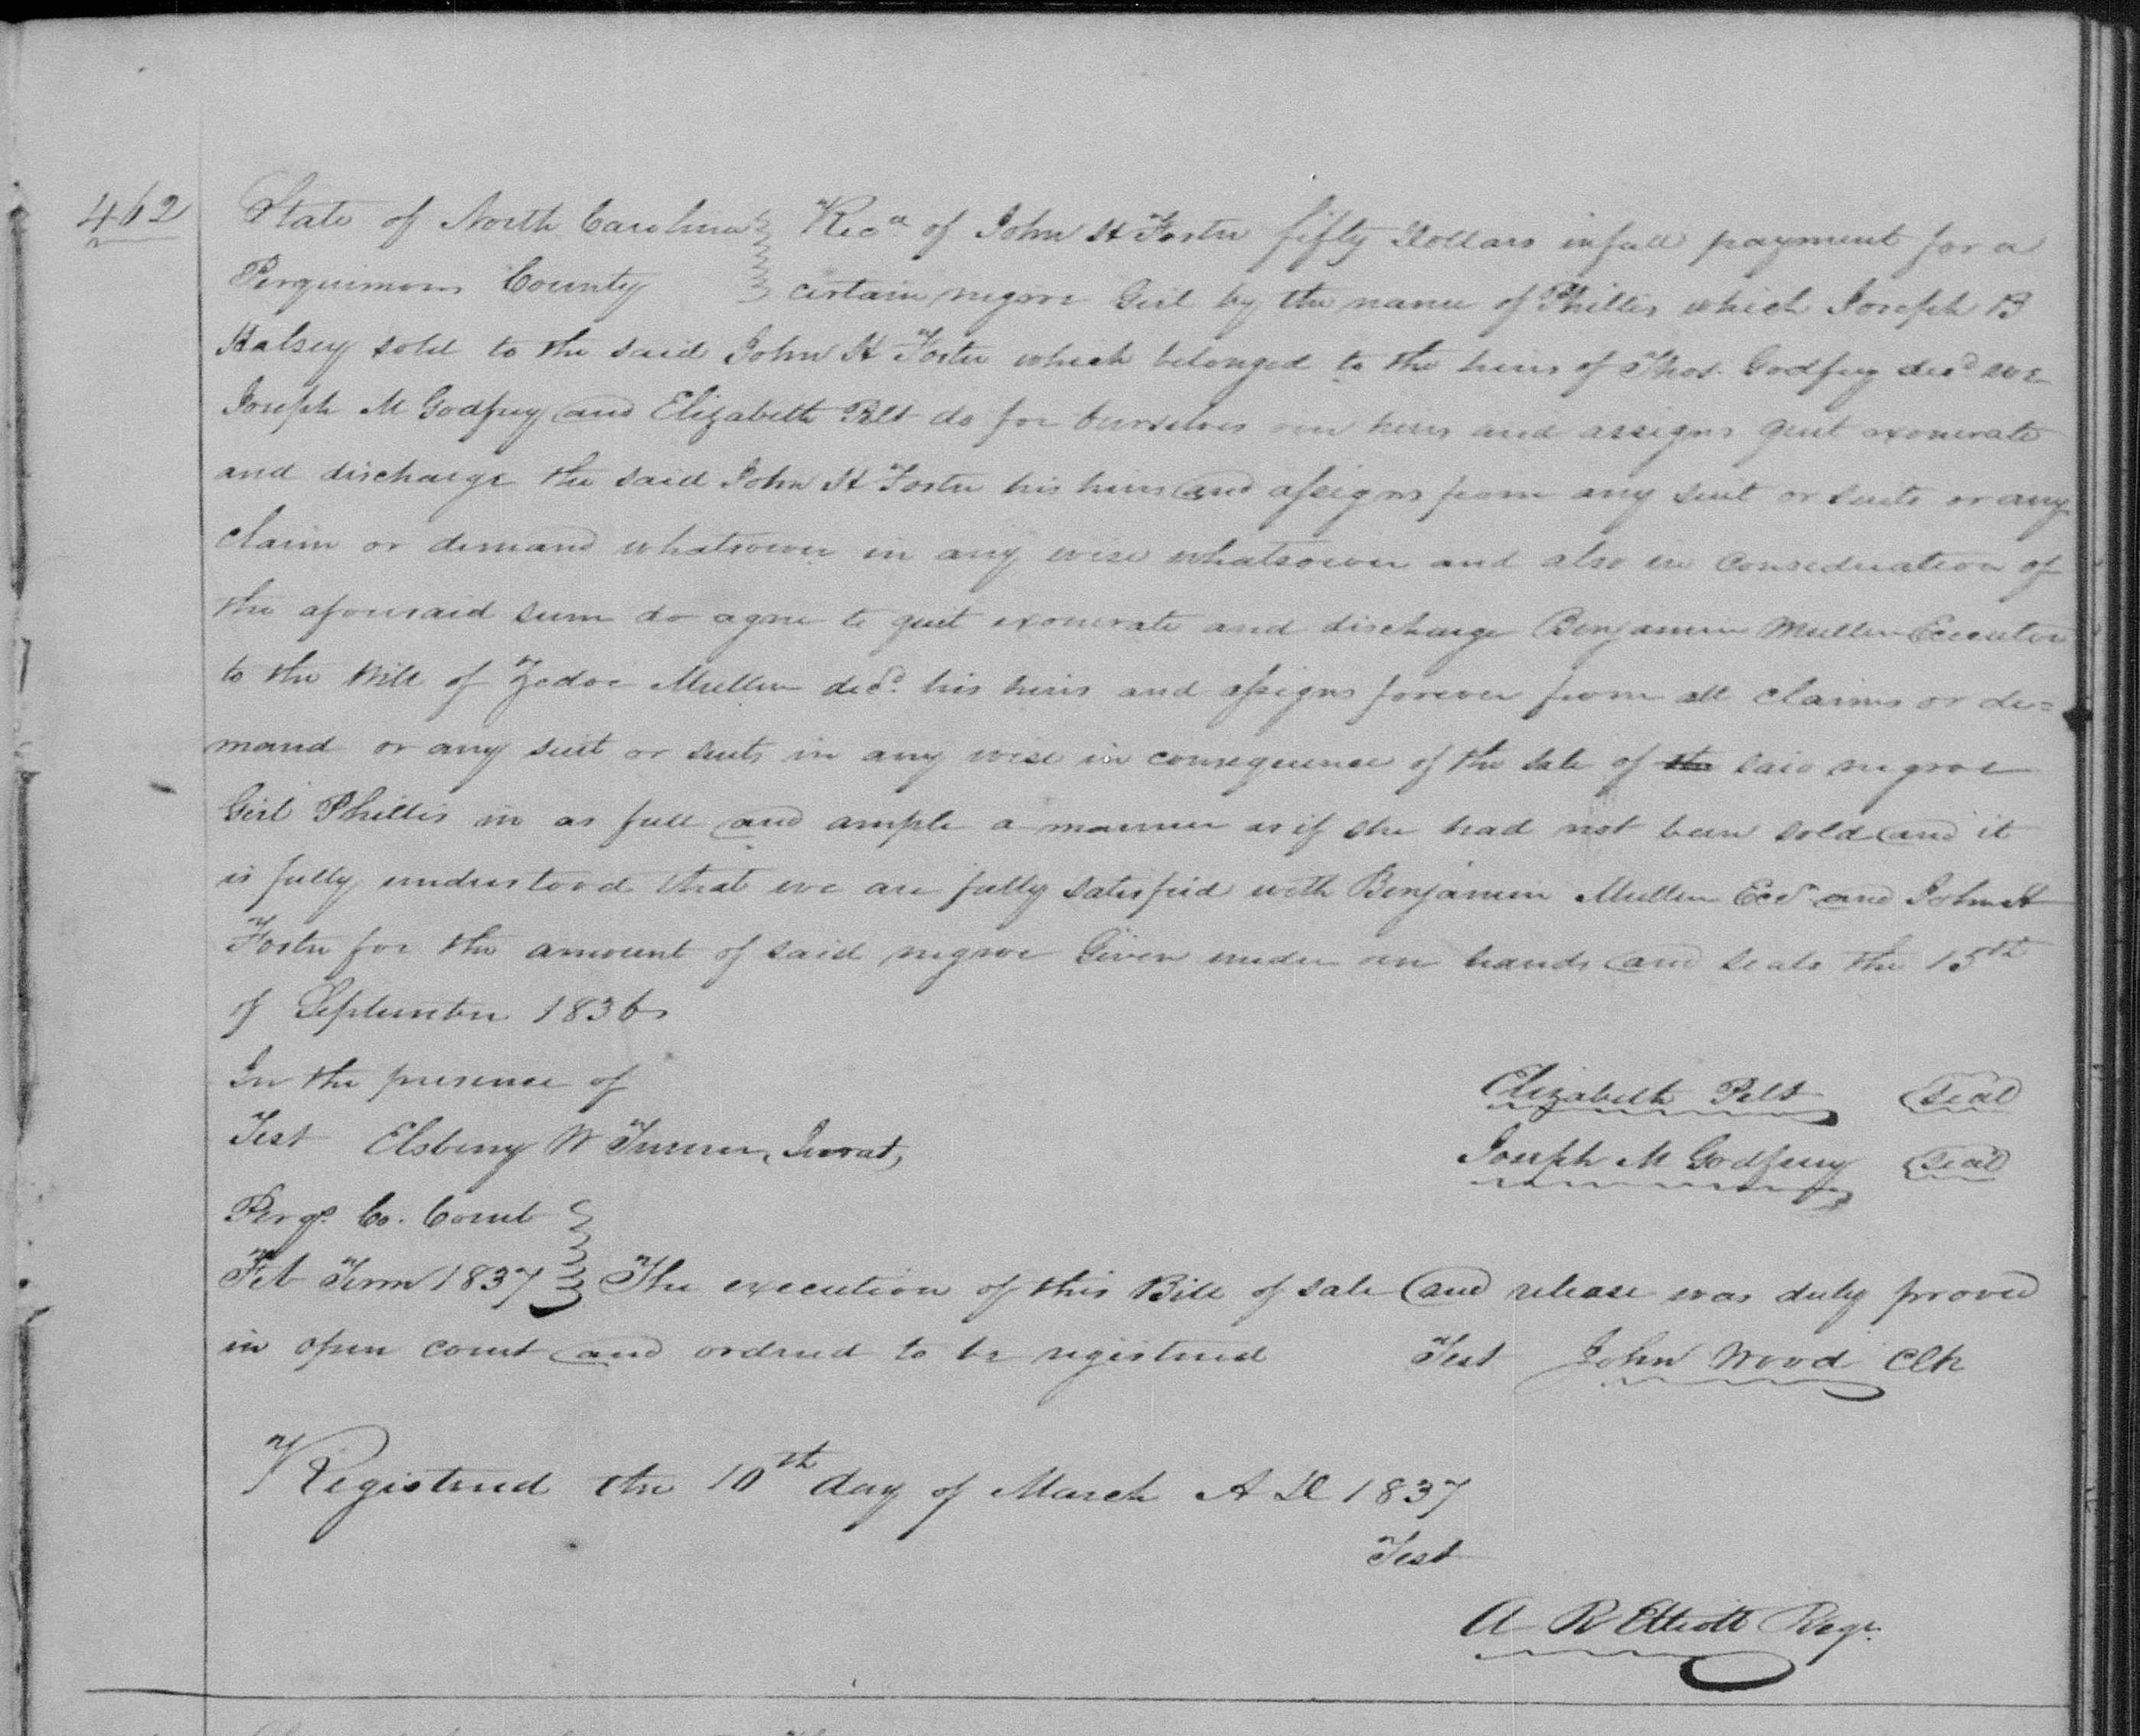 462
State of North Carolina Recd of John H Foster fifty Dollars in full payment for a
Perquimons County certain negroe Girl by the name of Phillis which Joseph B
Halsey sold to the said John H Foster which belonged to the heirs of Thos. Godfrey decd we
Joseph M Godfrey and Elizabeth Pelt do for ourselves our heirs and assigns quit exonerate
and discharge the said John H Foster his heirs and assigns from any suit or suits or any
claim or demand whatsoever in any wise whatsoever and also in consideration of
the aforesaid sum do agree to quit exonerate and discharge Benjamin Mullen Executor
to the Will of Zedoc Mullen decd. his heirs and assigns forever from all claims or de=
mand or any suit or suits in any wise in consequence of the sale of the said negroe
Girl Phillis in as full and ample a manner as if she had not been sold and it
is fully understood that we are fully satisfied with Benjamin Mullen Ecr and John H
Foster for the amount of said negroe Given under our hands and seals the 15th
of September 1836
In the presence of
Elizabeth Pelt seal
Test Elsberry W Turner, Jurat,
Joseph M Godfrey seal
Perqs. Co. Court
Feb Term 1837 The execution of this Bill of sale and release was duly proved
in open court and ordred to be registered Test John Wood Clk
Registered the 10th day of March A D 1837
Test
A R Elliott Regr.